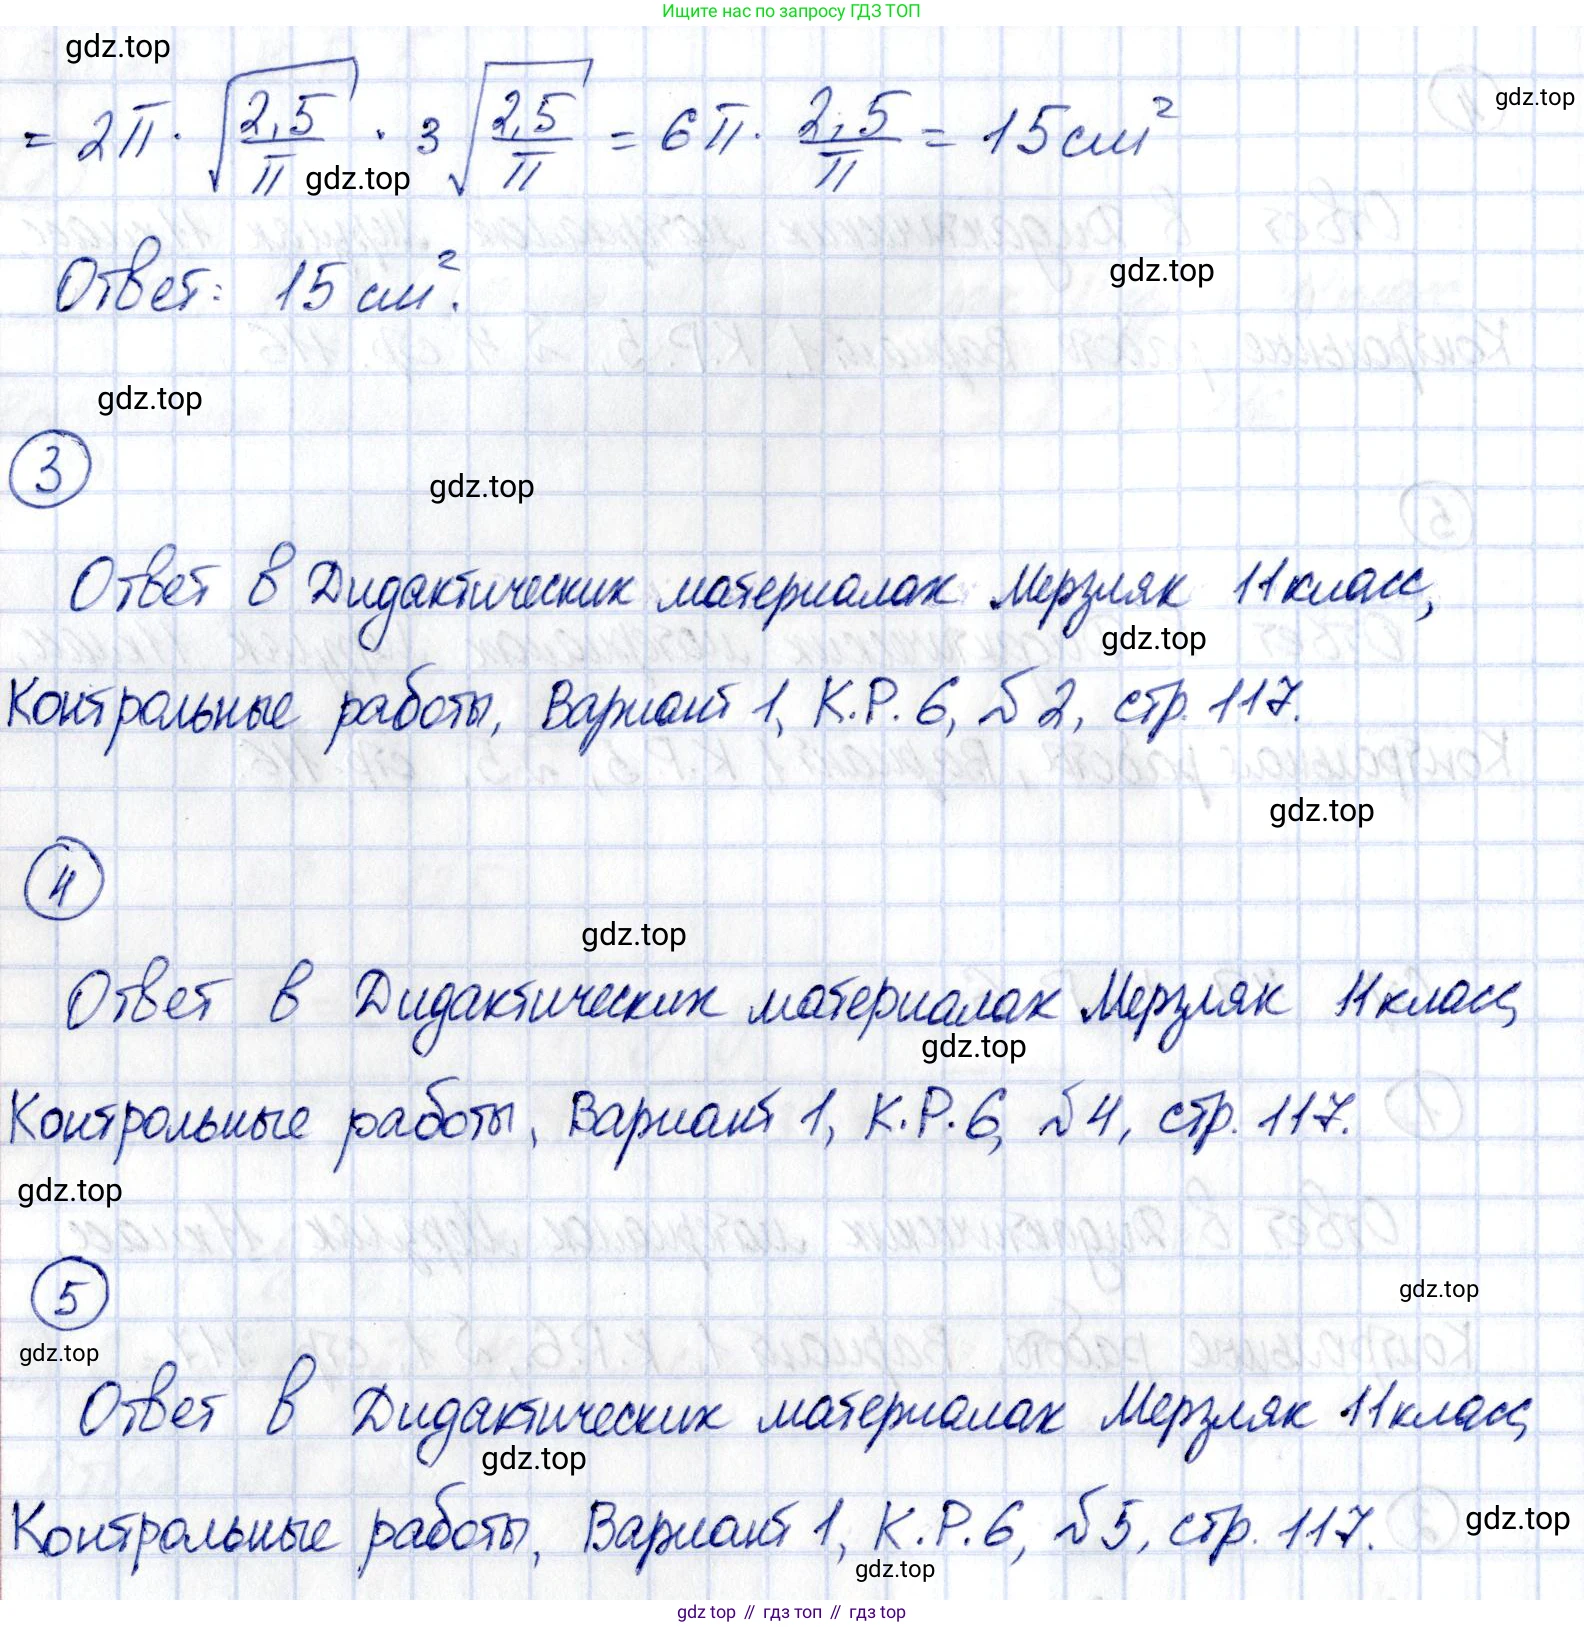 Ищите нас по запросу ГДЗ ТОП
gdz.top
gdz.top
= 2π · √(2,5/π) · 3√(2,5/π) = 6π · 2,5/π = 15 см²
gdz.top
Ответ: 15 см².
gdz.top
gdz.top
3
gdz.top
Ответ в Дидактических материалах Мерзляк 11 класс,
gdz.top
Контрольные работы, Вариант 1, К.Р. 6, №2, стр. 117.
gdz.top
4
gdz.top
Ответ в Дидактических материалах Мерзляк 11 класс,
gdz.top
Контрольные работы, Вариант 1, К.Р. 6, №4, стр. 117.
gdz.top
5
gdz.top
gdz.top
Ответ в Дидактических материалах Мерзляк 11 класс,
gdz.top
Контрольные работы, Вариант 1, К.Р. 6, №5, стр. 117.
gdz.top
gdz.top
gdz top // гдз топ // гдз top